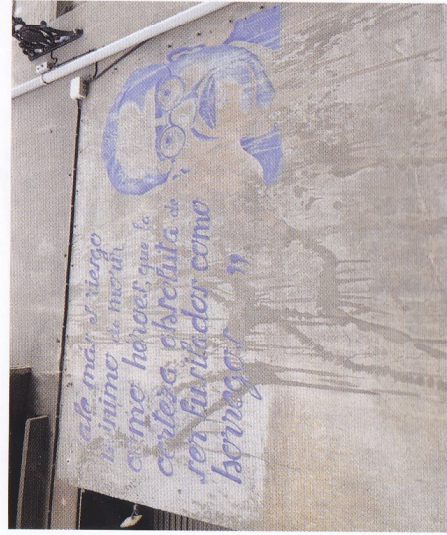 vale más el riesgo
mínimo de morir
como héroes, que la
certeza absoluta de
ser fusilados como
borregos"